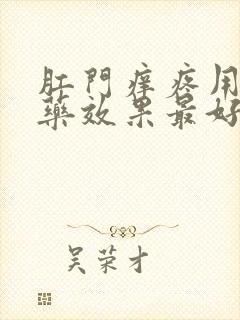 肛門痒疼用
藥效果最好
吴荣才